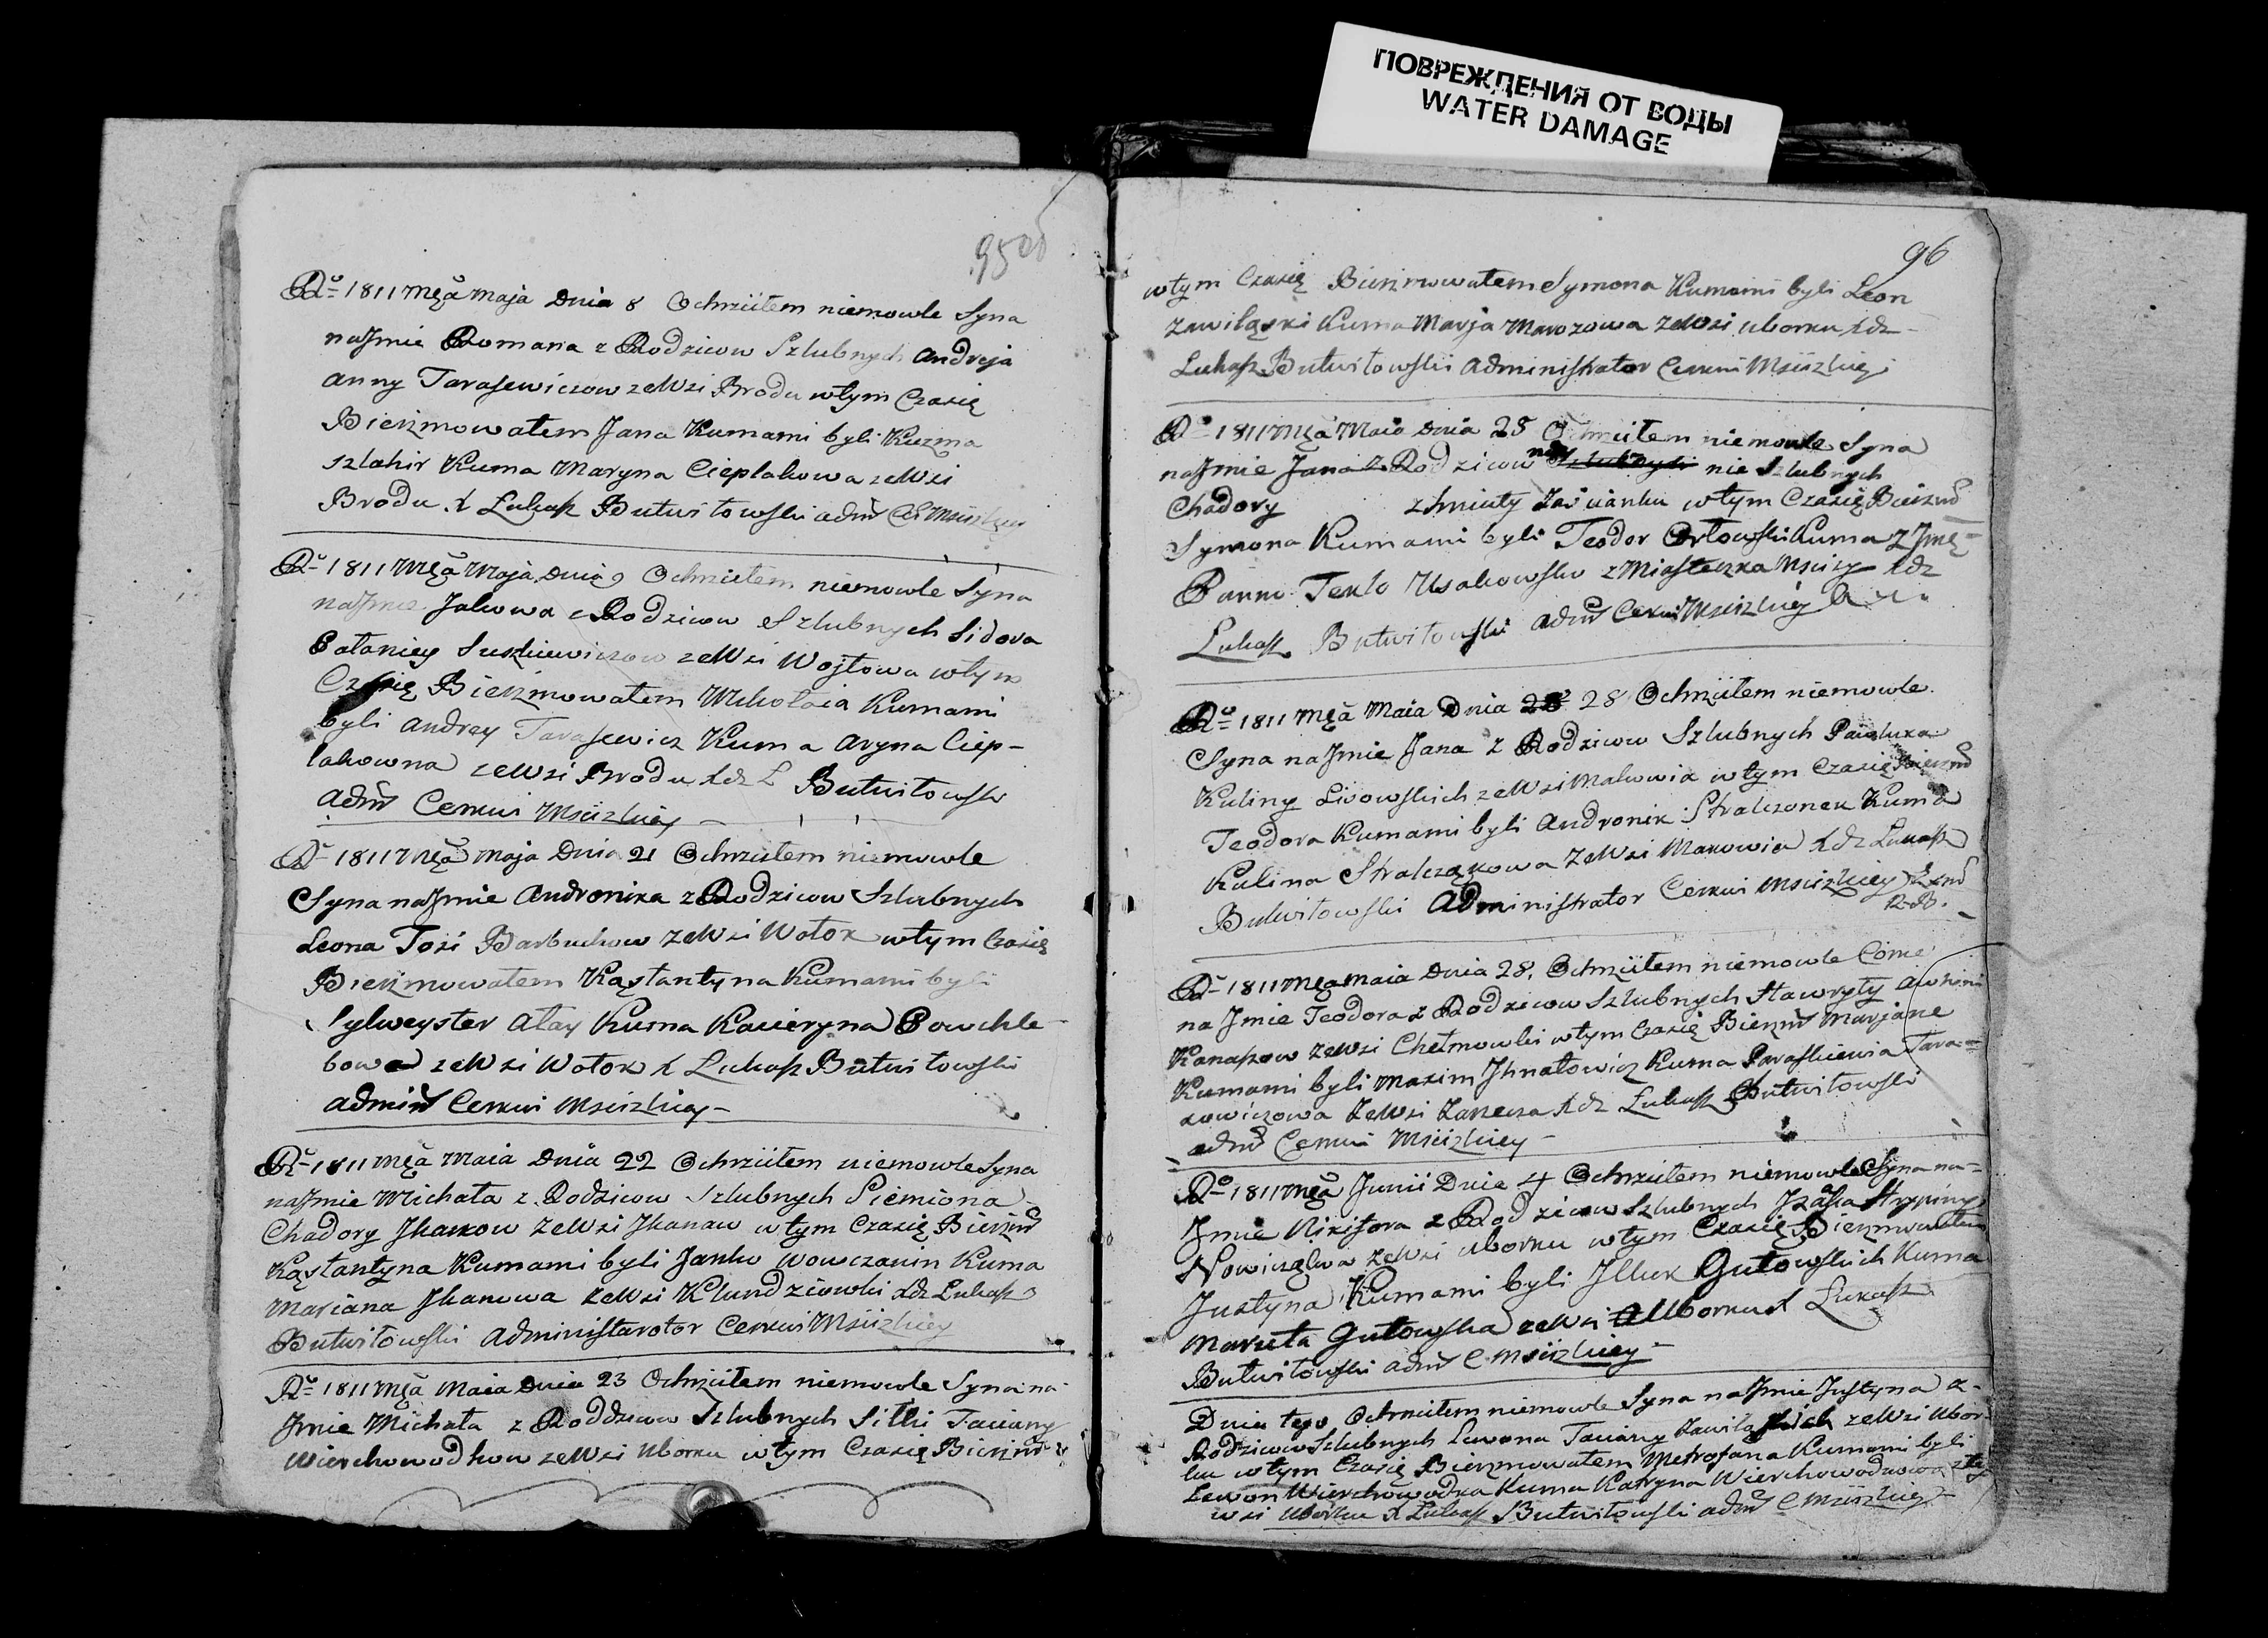 ПОВРЕЖДЕНИЯ ОТ ВОДЫ
WATER DAMAGE
95об
Rº 1811 Mcа Maja Dnia 8 Ochrzciłem niemowle Syna
na Jmie Romana z Rodzicow Szlubnych Andreja
Anny Tarasewiczow ze Wsi Brodu w tym Czasię
Bierzmowałem Jana Kumami byli Kuzma
Kuma Maryna Cieplakowa ze Wsi
Brodu X Łukasz Butwiłowski adm C Mscizkiey
Rº 1811 Mcа Maja Dnia 9 Ochrzciłem niemowle Syna
na Jmie Jakowa z Rodzicow Szlubnych Sidora
Połaniey Suszkiewiczow ze Wsi Wojtowa w tym
Czasię Bierzmowałem Mikołaia Kumami
byli Andrey Tarasewicz Kuma Aryna Ciep-
lakowna ze Wsi Brodu Xdz Ł Butwiłowski
adm Cerkwi Mscizkiey
Rº 1811 Mcа Maja Dnia 21 Ochrzciłem niemowle
Syna na Jmie Andronika z Rodzicow Szlubnych
Leona Tozi Barbuchow ze Wsi Wołok w tym Czasię
Bierzmowałem Kąstantyna Kumami byli
Sylweyster Ałay Kuma Kacieryna Powchle-
bowa ze Wsi Wołok X Łukasz Butwiłowski
admin Cerkwi Mscizkiey
Rº 1811 Mcа Maia Dnia 22 Ochrzciłem niemowle Syna
na Jmie Michała z Rodzicow Szlubnych Siemiona
Chadory Jkanow ze Wsi Jkanaw w tym Czasię Bierzm
Kąstantyna Kumami byli Janko Wowczanin Kuma
Mariana Jkanowa ze Wsi Kłundziowki Xdz Łukasz
Butwiłowski Administarotor Cerkwi Mscizkiey
Rº 1811 Mcа Maia Dnia 23 Ochrzciłem niemowle Syna na
Jmie Michała z Roddzicow Szlubnych Siłki Taciany
Wierchowodkow ze Wsi Uborku w tym Czasię Bierzm
96
w tym Czasię Bierzmowałem Symona Kumami byli Leon
Zawiląski Kuma Marja Marozowa ze Wsi Uborku Xdz
Łukasz Butwiłowski Administrator Cerkwi Mscizkiej
Rº 1811 Mcа Maia Dnia 25 Ochrzciłem niemowle Syna
na Jmie Jana z Rodzicow nie Szlubnych
Chadory w tym Czasię Bierzm
Symona Kumami byli Teodor Orłowski Kuma z Jmę
Panno Teklo Usakowsko z Miasteczka Mscizy Xdz
Łukasz Butwiłowski adm Cerkwi Mscizkiey
Rº 1811 Mcа Maia Dnia 28 Ochrzciłem niemowle
Syna na Jmie Jana z Rodzicow Szlubnych Pawluka
Kuliny Lisowskich ze Wsi Makowia w tym Czasię Bierzm
Teodora Kumami byli Andronik Stralczonek Kuma
Kulina Stralcząkowa ze Wsi Makowia Xdz Łukasz
Butwiłowski Administrator Cerkwi Mscizkiey
Rº 1811 Mcа Maia Dnia 28 Ochrzciłem niemowle Core
na Jmie Teodora z Rodzicow Szlubnych Hawryły
Kanaszow ze Wsi Chełmowki w tym Czasię Bierzm Marjane
Kumami byli Maxim Jhnatowicz Kuma Paraskiewia Tara-
sowiczowa ze Wsi Xdz Łukasz Butwiłowski
adm Cerkwi Mscizkiey
Rº 1811 Mcа Junii Dnia 4 Ochrzciłem niemowle Syna na
Jmie Nikifora z Rodzicow Szlubnych
ze Wsi Uborku w tym Czasię Bierzmowałem
Justyna Kumami byli Jllux Gutowskich Kuma
Maruta Gutowska ze Wsi Uborku X Łukasz
Butwiłowski adm C Mscizkiey
Dnia tego Ochrzciłem niemowle Syna na Jmie Justyna z
Rodzicow Szlubnych Lewona Taciany Zawiląskich ze Wsi Ubor-
ku w tym Czasię Bierzmowałem Metrofana Kumami byli
Lewon Wierchowodka Kuma Katryna Wierchowodkowa z tey
wsi Uborku X Łukasz Butwiłowski adm C Mscizkiey